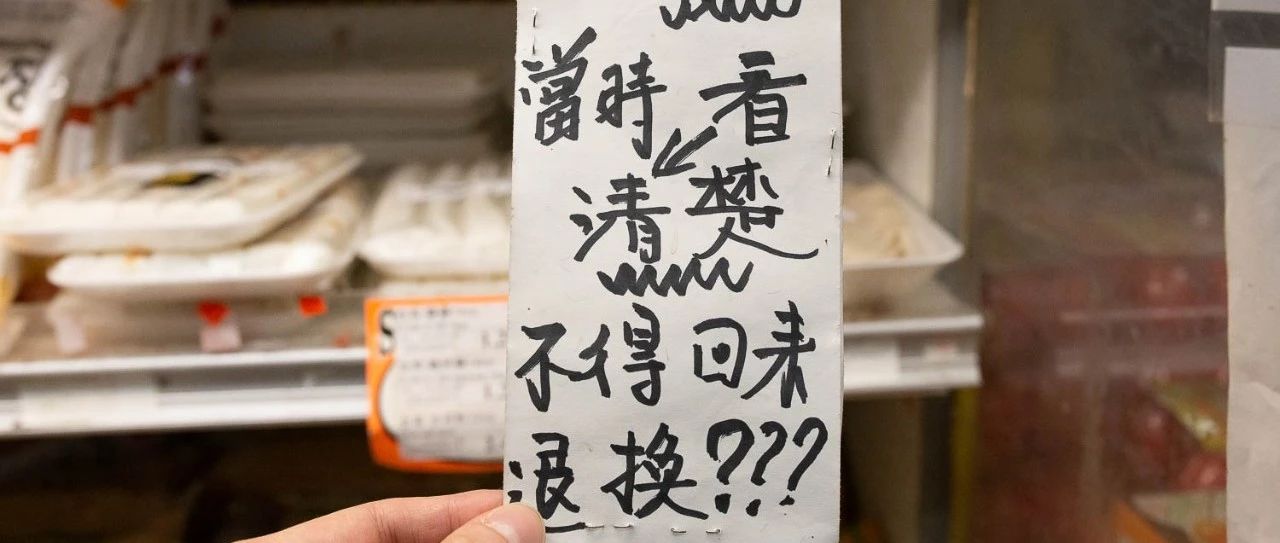 當時看
清楚
不得回来
退換???